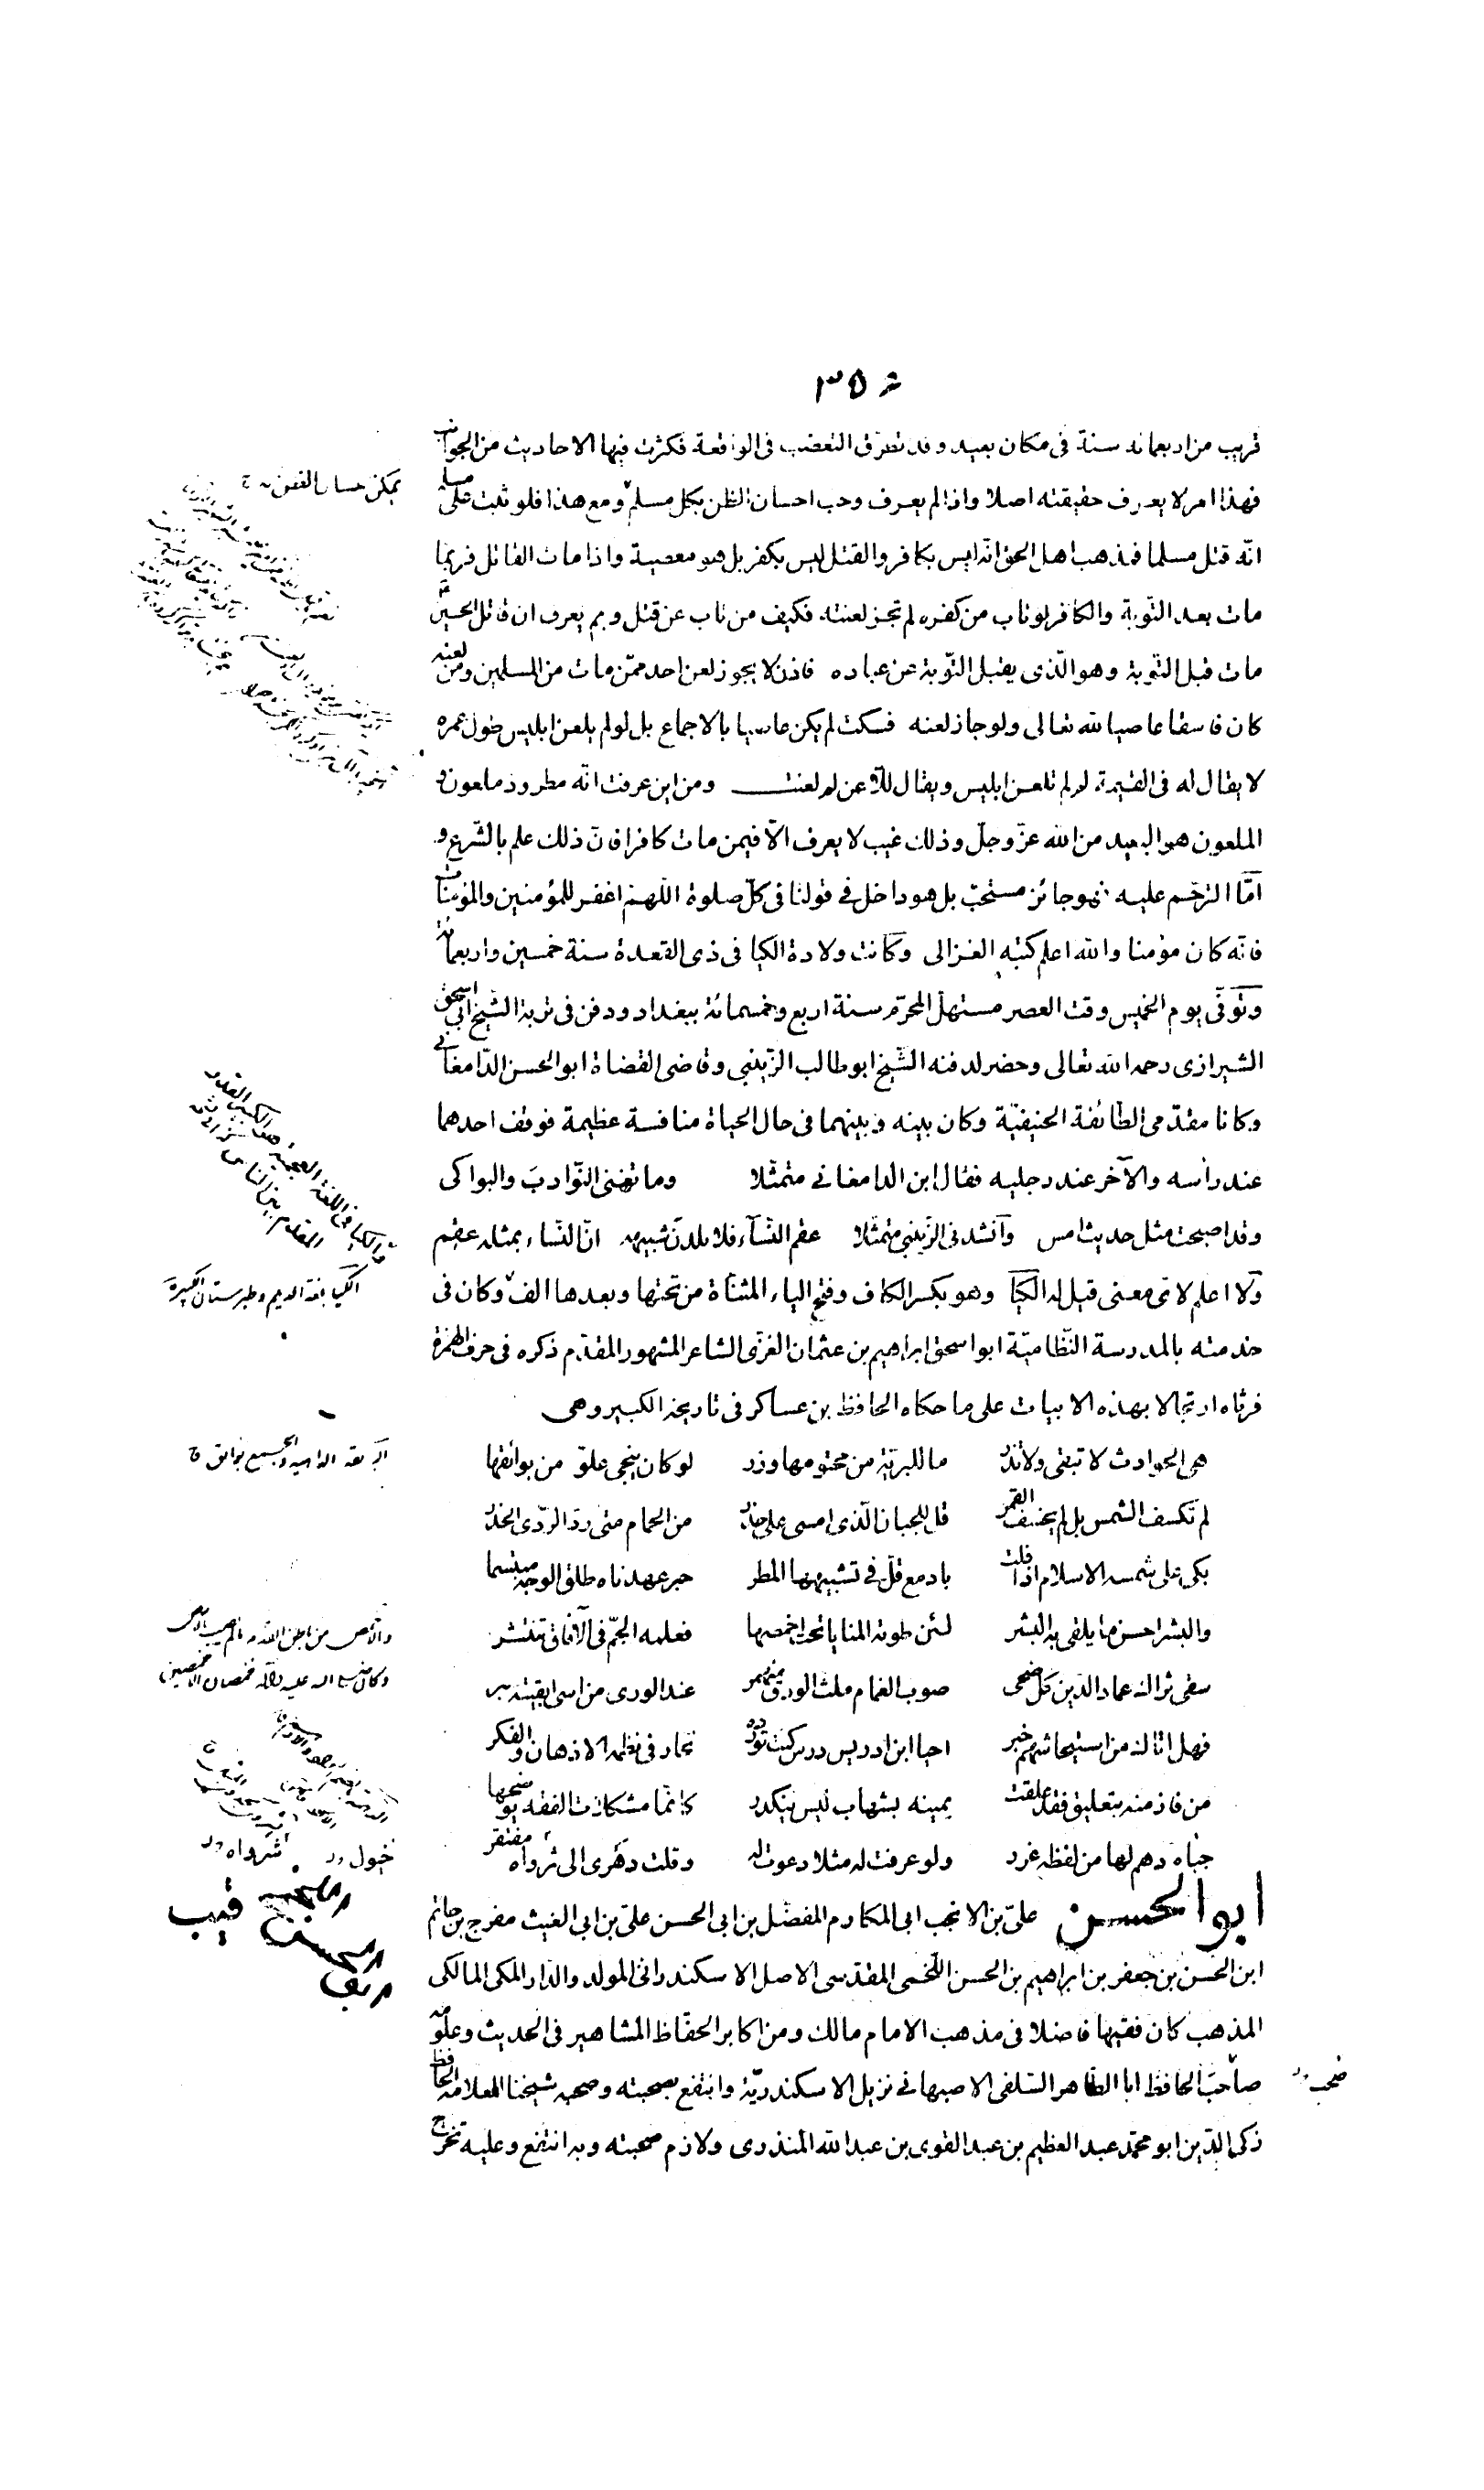 ٣٥٤
قريب من اربعمائة سنة فى مكان بعيد وقد تطرق التعصب فى الواقعة فكثرت فيها الاحاديث من الجوانب
فهذا امر لا يعرف حقيقته اصلا واذا لم يعرف وجب احسان الظن بكل مسلم ومع هذا فلو ثبت على مسلم
انّه قتل مسلما فمذهب اهل الحق انّه ليس بكافر والقتل ليس بكفر بل هو معصية واذا مات القاتل فربّما
مات بعد التّوبة والكافر لو تاب من كفره لم تجز لعنته فكيف من تاب عن قتل وبم يعرف ان قاتل الحسين
مات قبل التّوبة وهو الّذى يقبل التّوبة عن عباده فاذن لا يجوز لعن احد ممّن مات من المسلمين ومن لعنه
كان فاسقا عاصيا لله تعالى ولو جاز لعنه فسكت لم يكن عاصيا بالاجماع بل لو لم يلعن ابليس طول عمره
لا يقال له فى القيمة لم لم تلعن ابليس ويقال للّاعن لم لعنت ومن اين عرفت انّه مطرود ملعون و
الملعون هو البعيد من الله عزّ وجلّ وذلك غيب لا يعرف الّا فيمن مات كافرا فانّ ذلك علم بالشّرع و
امّا الترحّم عليه فهو جائز مستحبّ بل هو داخل فى قولنا فى كلّ صلوة اللّهمّ اغفر للمؤمنين والمؤمنات
فانّه كان مؤمنا والله اعلم كتبه الغزالى وكانت ولادة الكيا فى ذى القعدة سنة خمسين واربعمائة
وتوفّى يوم الخميس وقت العصر مستهلّ المحرّم سنة اربع وخمسمائة ببغداد ودفن فى تربة الشّيخ ابى اسحق
الشيرازى رحمه الله تعالى وحضر لدفنه الشّيخ ابو طالب الزّينبى وقاضى القضاة ابو الحسن الدّامغانى
وكانا مقدّمى الطّائفة الحنيفيّة وكان بينه وبينهما فى حال الحياة منافسة عظيمة فوقف احدهما
عند رأسه والآخر عند رجليه فقال ابن الدامغانى متمثّلا وما تغنى النّوادب والبواكى
وقد اصبحت مثل حديث امس وانشد فى الزّينبى متمثّلا عقم النّسآء فلا يلدن شبيهه انّ النّساء بمثله عقم
ولا اعلم لاىّ معنى قيل له الكيا وهو بكسر الكاف وفتح الياء المثنّاة من تحتها وبعدها الف وكان فى
خدمته بالمدرسة النّظاميّة ابو اسحق ابراهيم بن عثمان الغزّى الشاعر المشهور المقدّم ذكره فى حرف الهمزة
فرثاه ارتجالا بهذه الابيات على ما حكاه الحافظ بن عساكر فى تاريخه الكبير وهى
هى الحوادث لا تبقى ولا تذر ما للبريّة من محتومها وزر لو كان ينجى علوّ من بوائقها
لم تكسف الشمس بل لم يخسف القمر قل للجبان الّذى امسى على حذر من الحمام متى ردّ الرّدى الحذر
بكى على شمسه الاسلام اذ افلت بادمع قلّ فى تشبيهها المطر حبر عهدناه طلق الوجه مبتسما
والبشر احسن ما يلقى به البشر لئن طوته المنايا تحت اخمصها فعلمه الجمّ فى الآفاق منتشر
سقى ثراك عماد الدّين كل ضحى صوب الغمام ملث الودق منهمر عند الورى من اسى ابقيته خبر
فهل اتاك من استيحاشهم خبر احيا ابن ادريس درس كنت تورده تحار فى نظمه الاذهان والفكر
من فاز منه بتعليق فقد علقت يمينه بشهاب ليس ينكدر كانّما مشكلات الفقه يوضحها
جباه دهم لها من لفظه غرر ولو عرفت له مثلا دعوت له وقلت دهرى الى شرواه مفتقر
ابو الحسن علىّ بن الانجب ابى المكارم المفضّل بن ابى الحسن علىّ بن ابى الغيث مفرج بن حاتم
ابن الحسن بن جعفر بن ابراهيم بن الحسن اللّخمى المقدّسى الاصل الاسكندرانى المولد والدّار المكى المالكى
المذهب كان فقيها فاضلا فى مذهب الامام مالك ومن اكابر الحفّاظ المشاهير فى الحديث وعلومه
صاحب الحافظ ابا الطّاهر السّلفى الاصبهانى نزيل الاسكندريّة وانتفع بصحبته وصحبه شيخنا العلامة الحافظ
زكى الدّين ابو محمّد عبد العظيم بن عبد القوى بن عبد الله المنذرى ولازم صحبته وبه انتفع وعليه تخرج